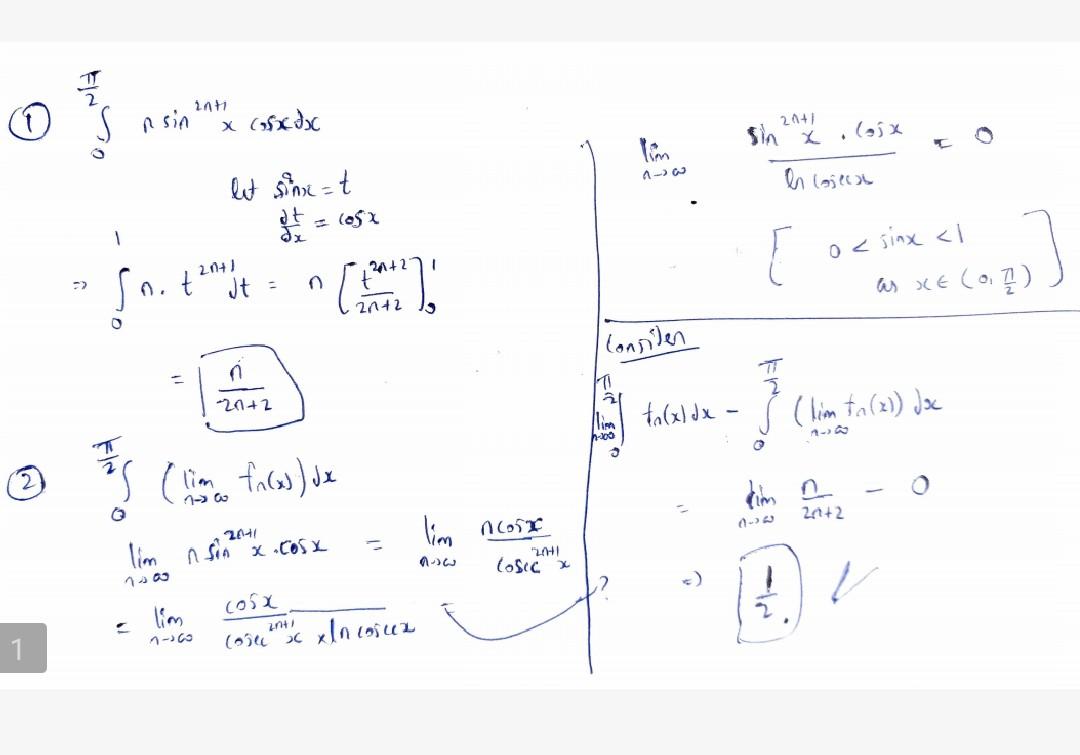 ① ∫₀^(π/2) n sin^(2n+1) x cosx dx
let sinx = t
dt/dx = cosx
⇒ ∫₀¹ n. t^(2n+1) dt = n [t^(2n+2)/(2n+2)]₀¹
= n/(2n+2)
② ∫₀^(π/2) (lim n→∞ fn(x)) dx
lim n→∞ n sin^(2n+1) x .cosx = lim n→∞ n cosx / cosec^(2n+1) x
= lim n→∞ cosx / (cosec^(2n+1) x × ln cosecx)
?
lim n→∞ sin^(2n+1) x . cosx / ln cosecx = 0
[ 0 < sinx < 1
as x ∈ (0, π/2) ]
Consider
lim n→∞ ∫₀^(π/2) fn(x) dx - ∫₀^(π/2) (lim n→∞ fn(x)) dx
= lim n→∞ n/(2n+2) - 0
=) 1/2.
1